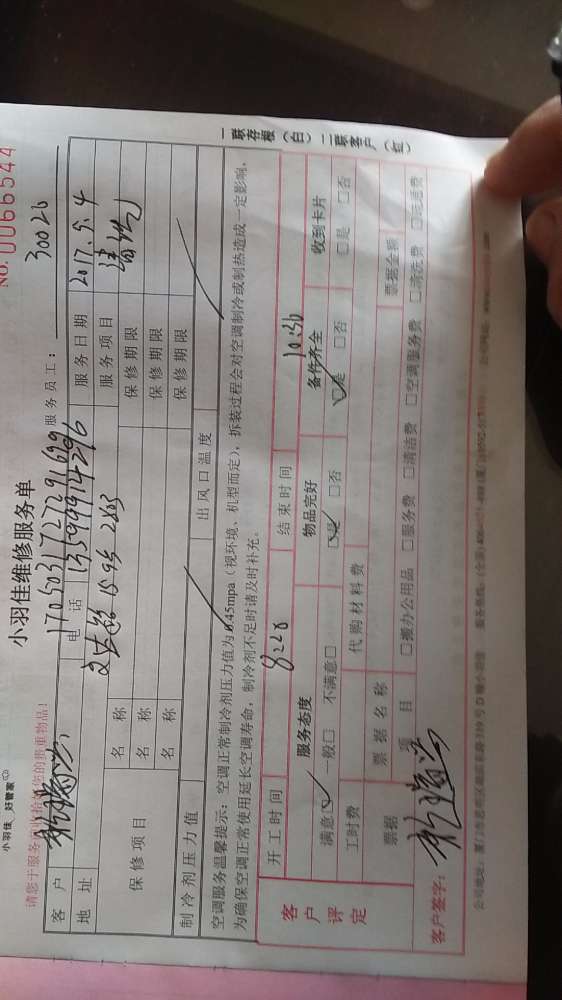 小羽佳 好管家
NO. 0066544
小羽佳维修服务单
请您于服务 的贵重物品!
服务员工: 30026
客户 1705031727291699 服务日期 2017.5.4
地址 电话 13599914296 服务项目 清洗
保修项目 名称 保修期限
名称 保修期限
名称 保修期限
制冷剂压力值 出风口温度
空调服务温馨提示:空调正常制冷剂压力值为0.45mpa(视环境、机型而定),拆装过程会对空调制冷或制热造成一定影响,
为确保空调正常使用延长空调寿命,制冷剂不足时请及时补充。
客户评定 开工时间 8:20 结束时间 10:30
服务态度 物品完好 备件齐全 收到卡片
满意□ 一般□ 不满意□ □是 □否 □是 □否 □是 □否
工时费 代购材料费
票据 票据名称 票据金额
项目 □搬办公用品 □服务费 □清洁费 □空调服务费 □清洗费 □洗涤费
客户签字:
一联存根(白) 二联客户(红)